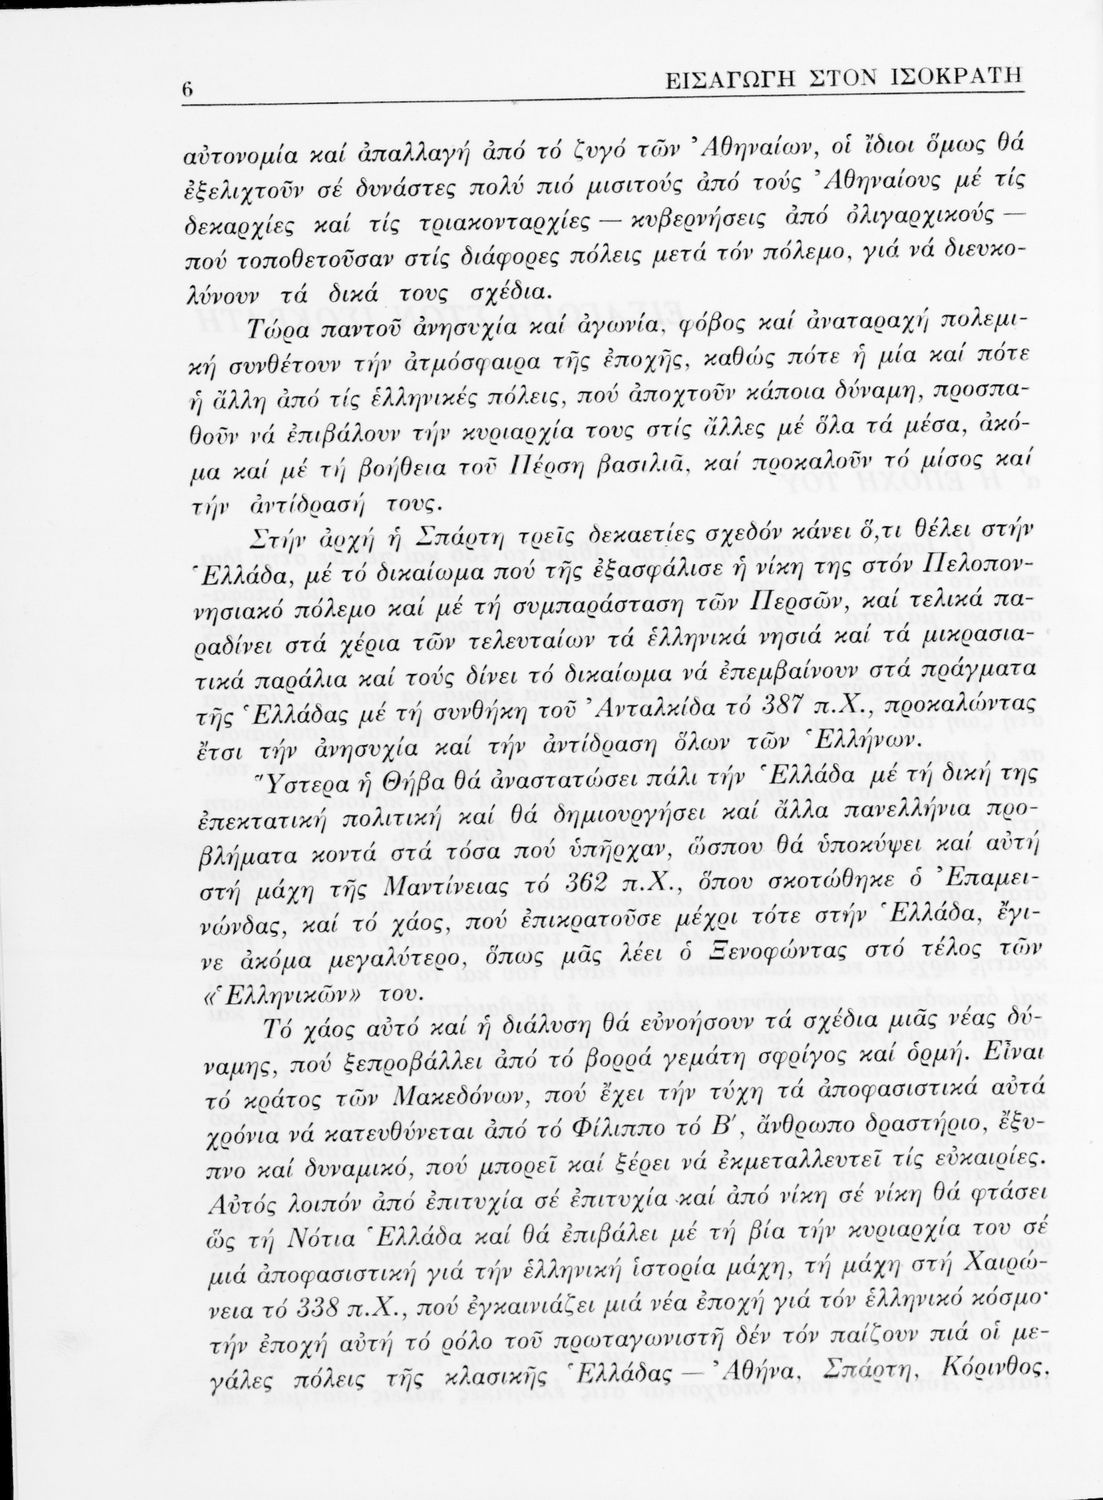 6 ΕΙΣΑΓΩΓΗ ΣΤΟΝ ΙΣΟΚΡΑΤΗ
αὐτονομία καί ἀπαλλαγή ἀπό τό ζυγό τῶν Ἀθηναίων, οἱ ἴδιοι ὅμως θά
ἐξελιχτοῦν σέ δυνάστες πολύ πιό μισητούς ἀπό τούς Ἀθηναίους μέ τίς
δεκαρχίες καί τίς τριακονταρχίες — κυβερνήσεις ἀπό ὀλιγαρχικούς —
πού τοποθετοῦσαν στίς διάφορες πόλεις μετά τόν πόλεμο, γιά νά διευκο-
λύνουν τά δικά τους σχέδια.
Τώρα παντοῦ ἀνησυχία καί ἀγωνία, φόβος καί ἀναταραχή πολεμι-
κή συνθέτουν τήν ἀτμόσφαιρα τῆς ἐποχῆς, καθώς πότε ἡ μία καί πότε
ἡ ἄλλη ἀπό τίς ἑλληνικές πόλεις, πού ἀποχτοῦν κάποια δύναμη, προσπα-
θοῦν νά ἐπιβάλουν τήν κυριαρχία τους στίς ἄλλες μέ ὅλα τά μέσα, ἀκό-
μα καί μέ τή βοήθεια τοῦ Πέρση βασιλιᾶ, καί προκαλοῦν τό μίσος καί
τήν ἀντίδρασή τους.
Στήν ἀρχή ἡ Σπάρτη τρεῖς δεκαετίες σχεδόν κάνει ὅ,τι θέλει στήν
Ἑλλάδα, μέ τό δικαίωμα πού τῆς ἐξασφάλισε ἡ νίκη της στόν Πελοπον-
νησιακό πόλεμο καί μέ τή συμπαράσταση τῶν Περσῶν, καί τελικά πα-
ραδίνει στά χέρια τῶν τελευταίων τά ἑλληνικά νησιά καί τά μικρασια-
τικά παράλια καί τούς δίνει τό δικαίωμα νά ἐπεμβαίνουν στά πράγματα
τῆς Ἑλλάδας μέ τή συνθήκη τοῦ Ἀνταλκίδα τό 387 π.Χ., προκαλώντας
ἔτσι τήν ἀνησυχία καί τήν ἀντίδραση ὅλων τῶν Ἑλλήνων.
Ὕστερα ἡ Θήβα θά ἀναστατώσει πάλι τήν Ἑλλάδα μέ τή δική της
ἐπεκτατική πολιτική καί θά δημιουργήσει καί ἄλλα πανελλήνια προ-
βλήματα κοντά στά τόσα πού ὑπῆρχαν, ὥσπου θά ὑποκύψει καί αὐτή
στή μάχη τῆς Μαντίνειας τό 362 π.Χ., ὅπου σκοτώθηκε ὁ Ἐπαμει-
νώνδας, καί τό χάος, πού ἐπικρατοῦσε μέχρι τότε στήν Ἑλλάδα, ἔγι-
νε ἀκόμα μεγαλύτερο, ὅπως μᾶς λέει ὁ Ξενοφώντας στό τέλος τῶν
«Ἑλληνικῶν» του.
Τό χάος αὐτό καί ἡ διάλυση θά εὐνοήσουν τά σχέδια μιᾶς νέας δύ-
ναμης, πού ξεπροβάλλει ἀπό τό βορρά γεμάτη σφρίγος καί ὁρμή. Εἶναι
τό κράτος τῶν Μακεδόνων, πού ἔχει τήν τύχη τά ἀποφασιστικά αὐτά
χρόνια νά κατευθύνεται ἀπό τό Φίλιππο τό Β΄, ἄνθρωπο δραστήριο, ἔξυ-
πνο καί δυναμικό, πού μπορεῖ καί ξέρει νά ἐκμεταλλευτεῖ τίς εὐκαιρίες.
Αὐτός λοιπόν ἀπό ἐπιτυχία σέ ἐπιτυχία καί ἀπό νίκη σέ νίκη θά φτάσει
ὥς τή Νότια Ἑλλάδα καί θά ἐπιβάλει μέ τή βία τήν κυριαρχία του σέ
μιά ἀποφασιστική γιά τήν ἑλληνική ἱστορία μάχη, τή μάχη στή Χαιρώ-
νεια τό 338 π.Χ., πού ἐγκαινιάζει μιά νέα ἐποχή γιά τόν ἑλληνικό κόσμο·
τήν ἐποχή αὐτή τό ρόλο τοῦ πρωταγωνιστῆ δέν τόν παίζουν πιά οἱ με-
γάλες πόλεις τῆς κλασικῆς Ἑλλάδας — Ἀθήνα, Σπάρτη, Κόρινθος,